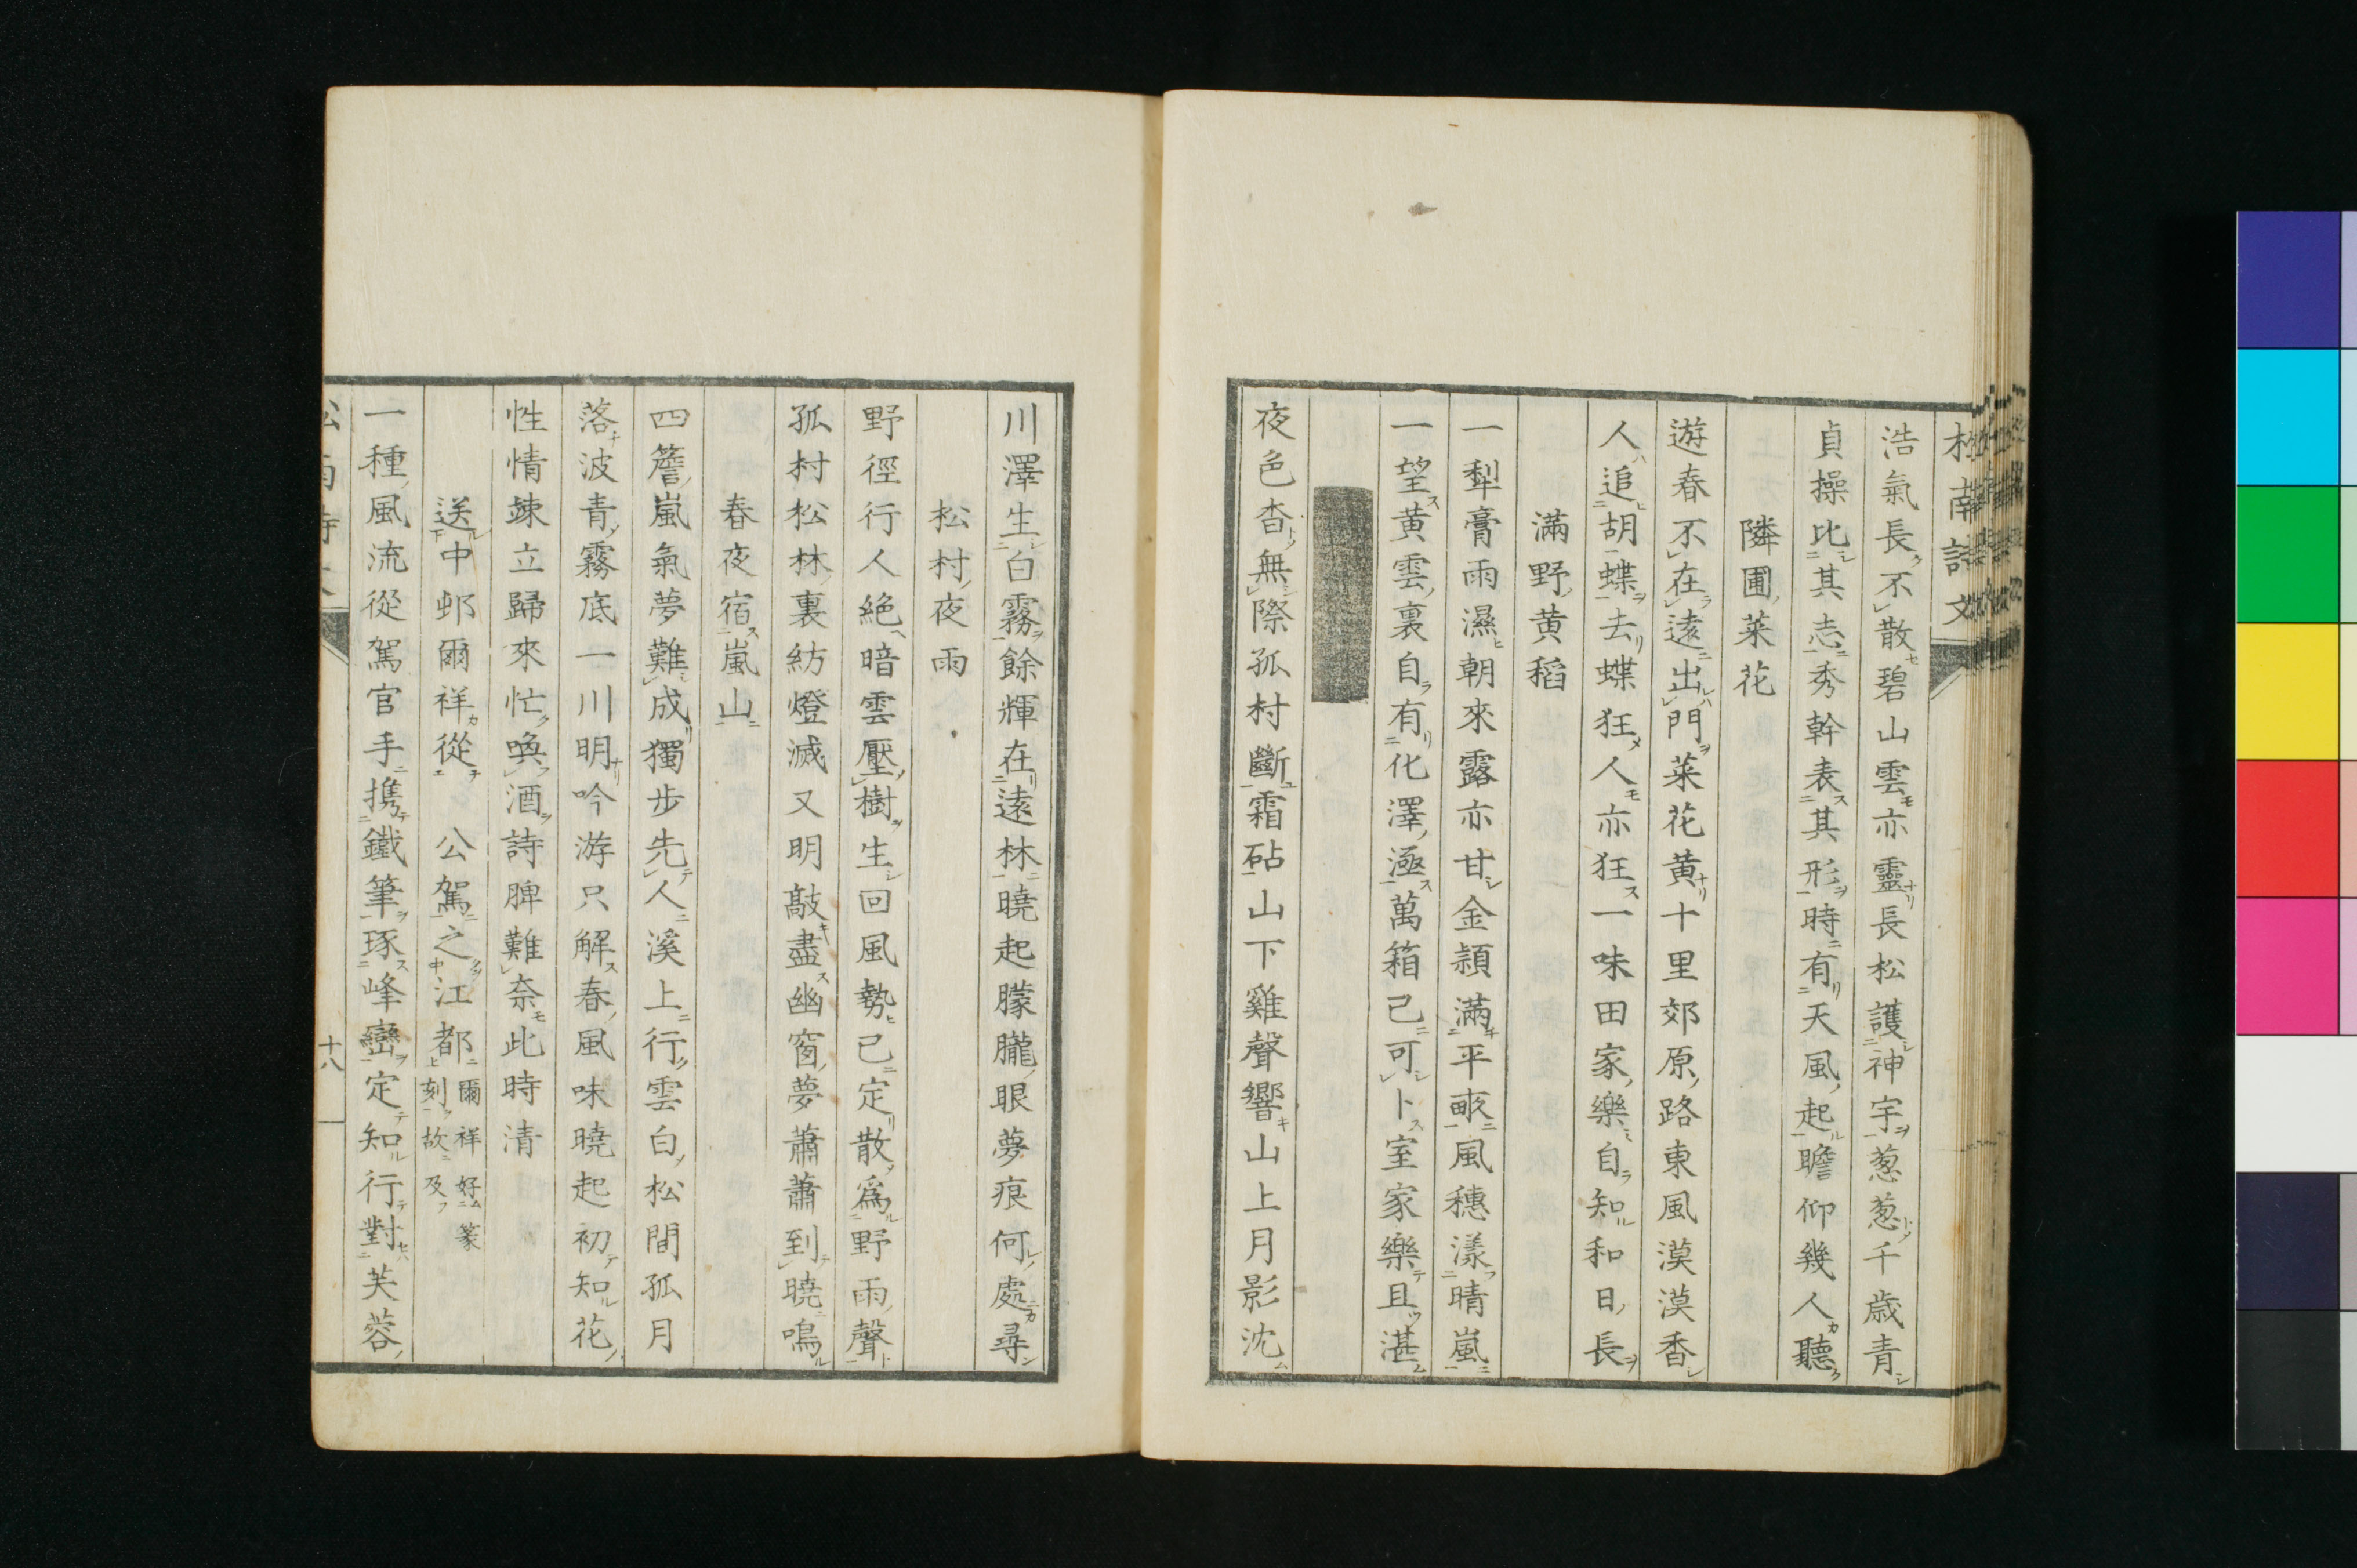 松南詩文
浩氣長不散碧山雲亦靈長松護神宇葱葱千歳青
貞操比其志秀幹表其形時有天風起瞻仰幾人聽
隣圃菜花
遊春不在遠出門菜花黄十里郊原路東風漠漠香
人追胡蝶去蝶狂人亦狂一味田家樂自知和日長
滿野黄稻
一犁膏雨濕朝來露亦甘金頴滿平畞風穗漾晴嵐
一望黄雲裏自有化澤涵萬箱已可卜室家樂且湛
夜色杳無際孤村斷霜砧山下雞聲響山上月影沈
川澤生白霧餘輝在遠林曉起朦朧眼夢痕何處尋
松村夜雨
野徑行人絶暗雲壓樹生回風勢已定散爲野雨聲
孤村松林裏紡燈滅又明敲盡幽窗夢蕭蕭到曉鳴
春夜宿嵐山
四簷嵐氣夢難成獨步先人溪上行雲白松間孤月
落波青霧底一川明吟游只解春風味曉起初知花
性情竦立歸來忙喚酒詩脾難奈此時清
送中邨爾祥從 公駕之江都 爾祥好篆刻故及
一種風流從駕官手携鐵筆琢峰巒定知行對芙蓉
十八